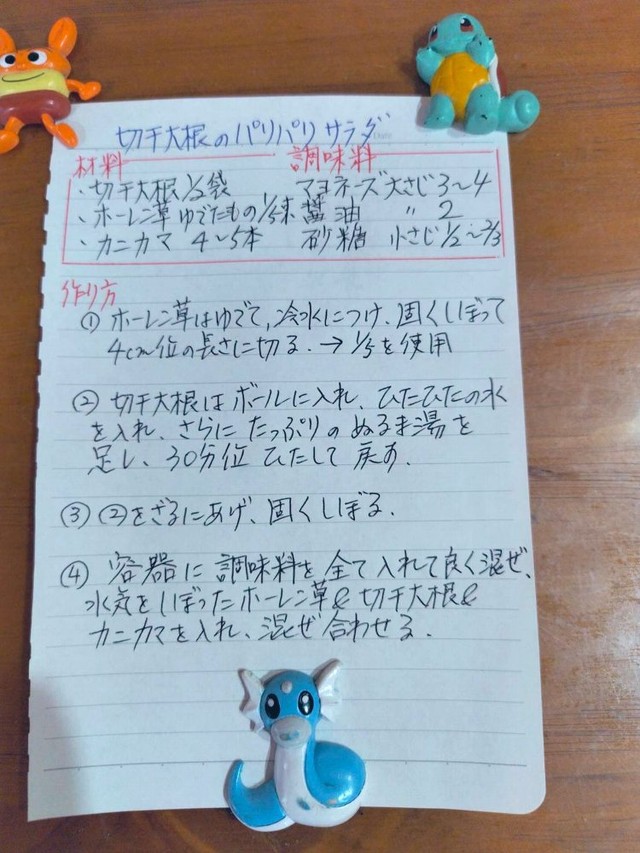 切干大根のパリパリサラダ
材料 調味料
・切干大根 1/2袋 マヨネーズ 大さじ3〜4
・ホーレン草 ゆでたもの 1/5束 醤油 〃 2
・カニカマ 4〜5本 砂糖 小さじ 1/2〜2/3
作り方
① ホーレン草はゆでて、冷水につけ、固くしぼって
4cm位の長さに切る。→ 1/5を使用
② 切干大根はボールに入れ、ひたひたの水
を入れ、さらに たっぷりの ぬるま湯を
足し、30分位 ひたして 戻す。
③ ②をざるにあげ、固くしぼる。
④ 容器に 調味料を 全て入れて良く混ぜ、
水気をしぼったホーレン草& 切干大根&
カニカマを入れ、混ぜ合わせる。